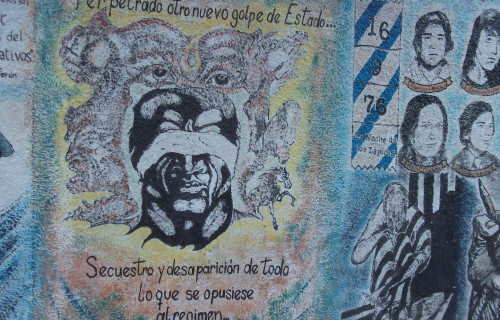 Perpetrado otro nuevo golpe de Estado...
Secuestro y desaparición de todo
lo que se opusiese
al regimen...
del
ativos"
Perón
16
9
76
Noche de